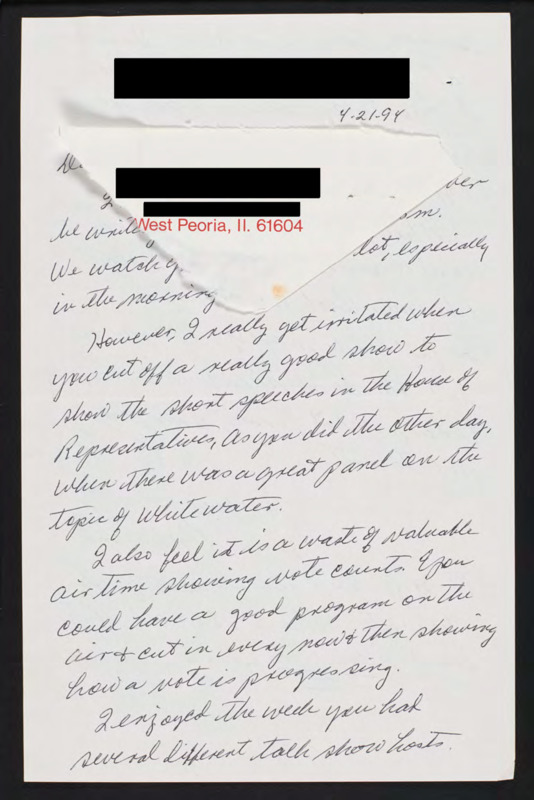 4-21-94
West Peoria, Il. 61604
be
lot, especially
We watch
in the morning
However, I really get irritated when
you cut off a really good show to
show the short speeches in the House of
Representatives, as you did the other day,
when there was a great panel on the
topic of Whitewater.
I also feel it is a waste of valuable
air time showing vote counts. You
could have a good program on the
air & cut in every now & then showing
how a vote is progressing.
I enjoyed the week you had
several different talk show hosts.